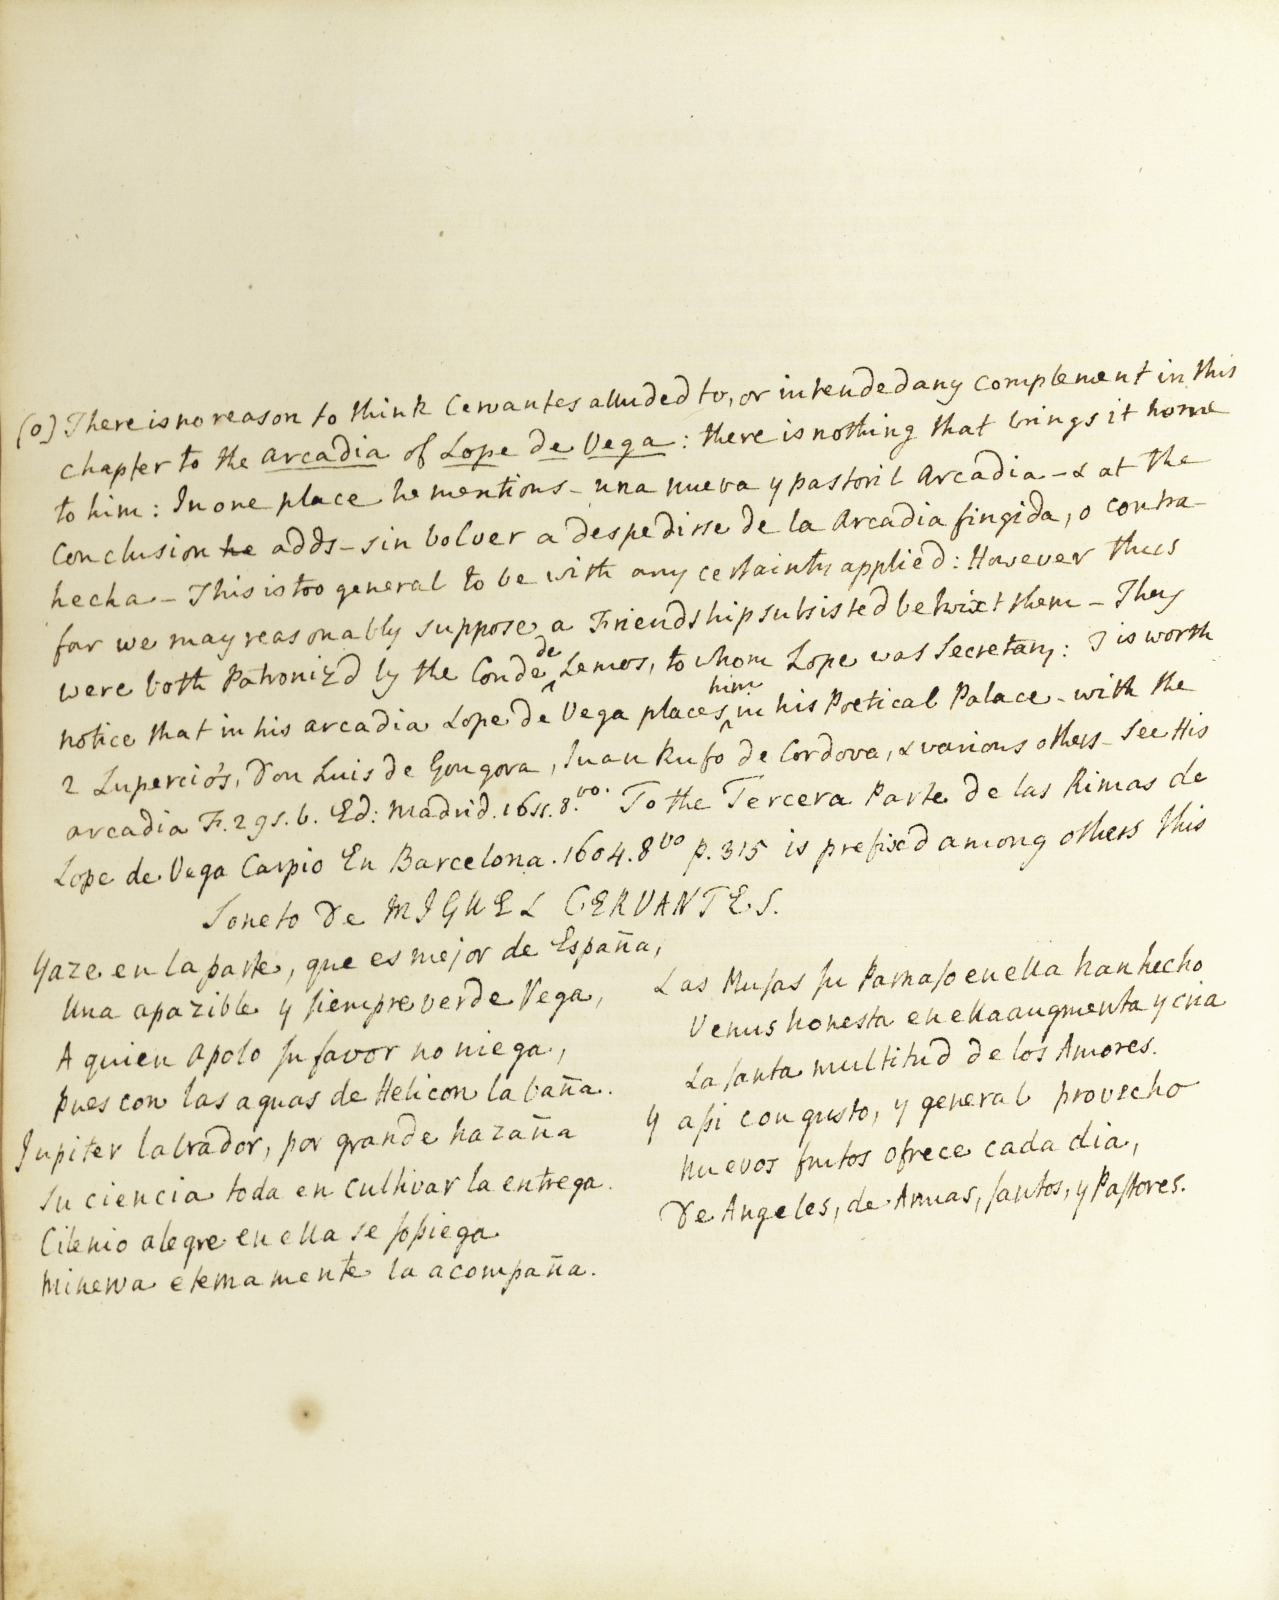 (o) There is no reason to think Cervantes alluded to, or intended any complement in this
chapter to the Arcadia of Lope de Vega: there is nothing that brings it home
to him: In one place he mentions - una nueva y pastoril Arcadia - & at the
Conclusion he adds - sin bolver a despedirse de la Arcadia fingida, o contra-
hecha - This is too general to be with any certainty applied: However thus
far we may reasonably suppose a Friendship subsisted betwixt them - They
were both Patroniz'd by the Conde de Lemos, to whom Lope was Secretary: T is worth
notice that in his Arcadia Lope de Vega places him in his Poetical Palace - with the
2 Lupercio's, Don Luis de Gongora, Juan Rufo de Cordova, & various others - See His
Arcadia F. 295. b. Ed: Madrid. 1611. 8.vo. To the Tercera Parte de las Rimas de
Lope de Vega Carpio En Barcelona. 1604. 8vo p. 315 is prefixed among others this
Soneto De MIGUEL CERVANTES.
Yaze en la parte, que es mejor de España,
Una apazible y siempre verde Vega,
A quien Apolo su favor no niega,
Pues con las aguas de Helicon la baña.
Jupiter labrador, por grande hazaña
Su ciencia toda en cultivar la entrega.
Cilenio alegre en ella se sossiega
Minerva eternamente la acompaña.
Las Musas su Parnaso en ella han hecho
Venus honesta en ella augmenta y cria
La santa multitud de los Amores.
Y assi con gusto, y general provecho
Nuevos frutos ofrece cada dia,
De Angeles, de Armas, santos, y Pastores.